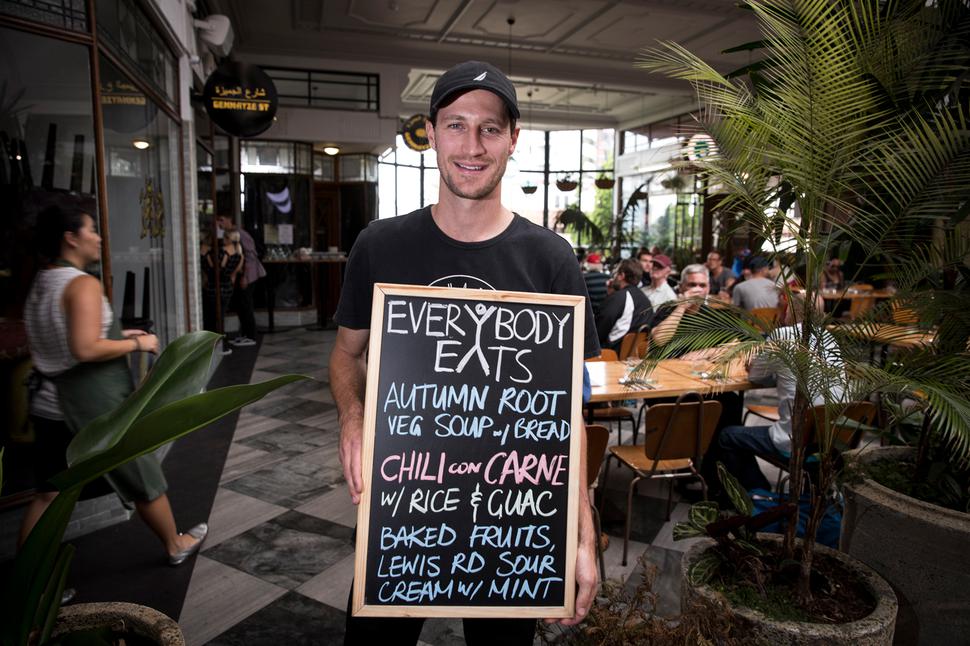 شارع الجميزة
GEMMAYZE ST
EVERYBODY
EATS
AUTUMN ROOT
VEG SOUP w/ BREAD
CHILI CON CARNE
W/ RICE & GUAC
BAKED FRUITS,
LEWIS RD SOUR
CREAM W/ MINT